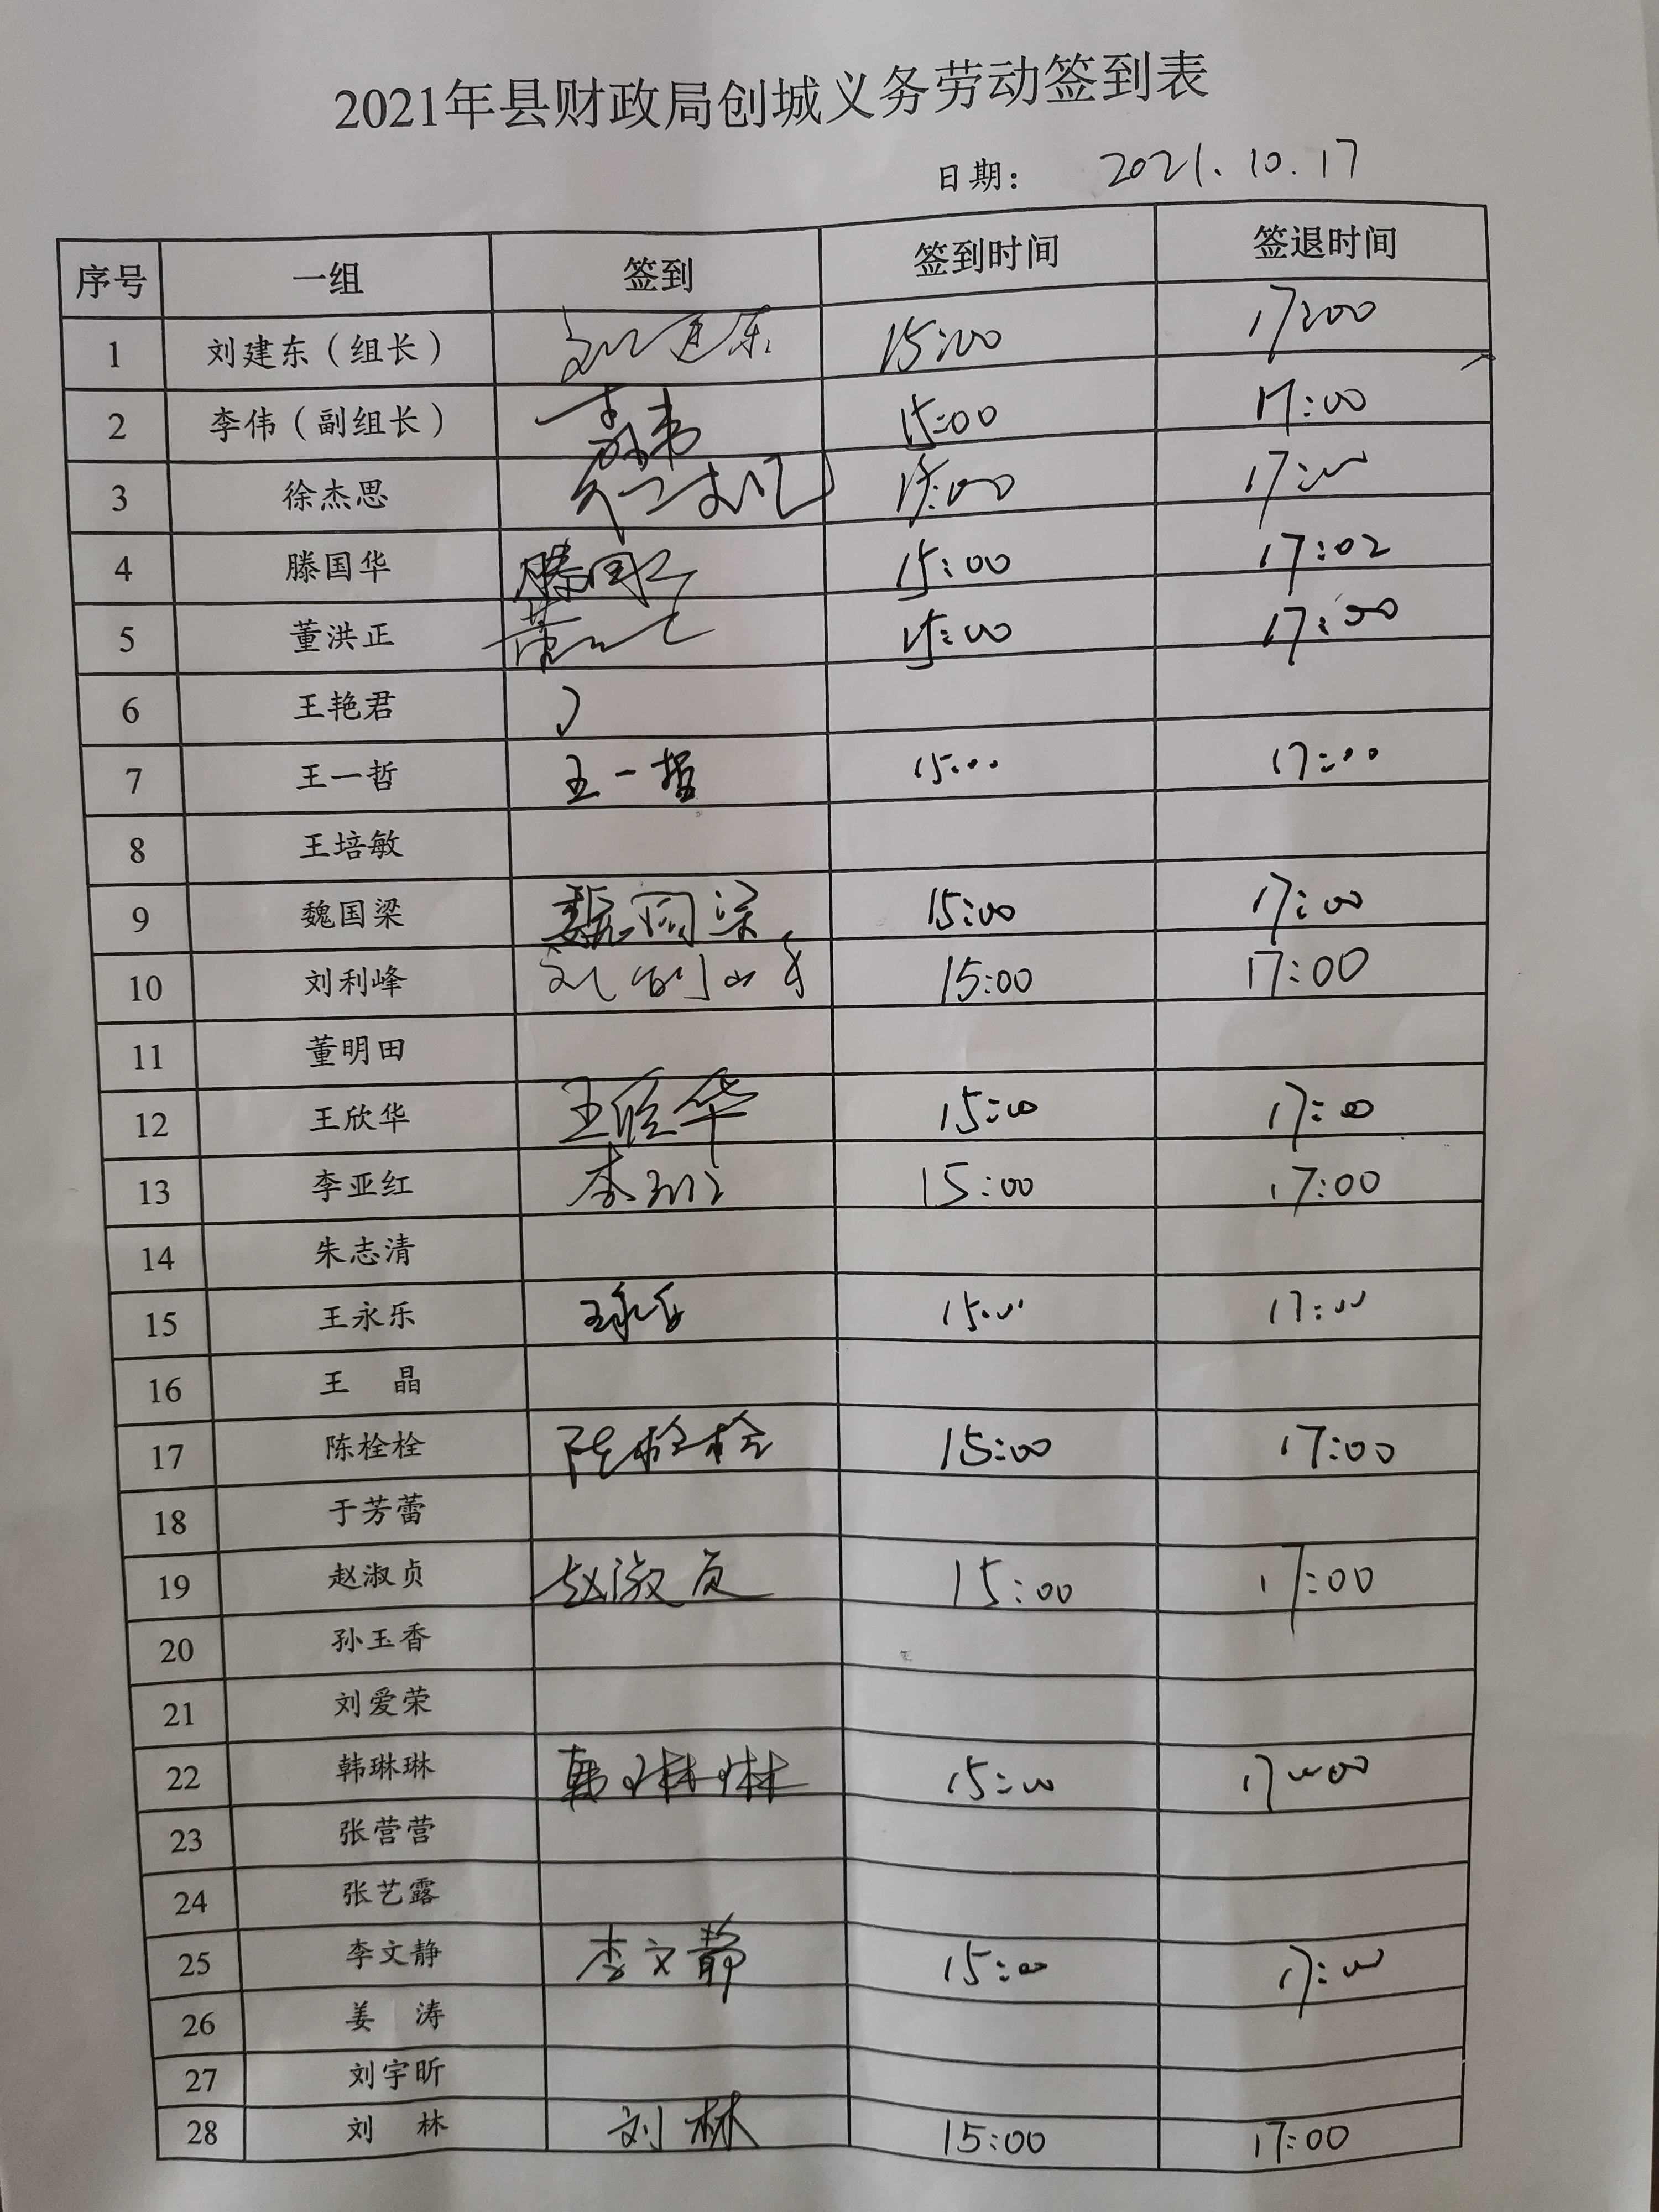 2021年县财政局创城义务劳动签到表
日期： 2021.10.17
序号 一组 签到 签到时间 签退时间
1 刘建东（组长） 刘建东 15:00 17:00
2 李伟（副组长） 李伟 15:00 17:00
3 徐杰思 15:00 17:00
4 滕国华 滕国华 15:00 17:02
5 董洪正 董洪正 15:00 17:00
6 王艳君
7 王一哲 王一哲 15:00 17:00
8 王培敏
9 魏国梁 魏国梁 15:00 17:00
10 刘利峰 刘利峰 15:00 17:00
11 董明田
12 王欣华 王欣华 15:00 17:00
13 李亚红 李亚红 15:00 17:00
14 朱志清
15 王永乐 王永乐 15:00 17:00
16 王 晶
17 陈栓栓 陈栓栓 15:00 17:00
18 于芳蕾
19 赵淑贞 赵淑贞 15:00 17:00
20 孙玉香
21 刘爱荣
22 韩琳琳 韩琳琳 15:00 17:00
23 张营营
24 张艺露
25 李文静 李文静 15:00 17:00
26 姜 涛
27 刘宇昕
28 刘 林 刘林 15:00 17:00